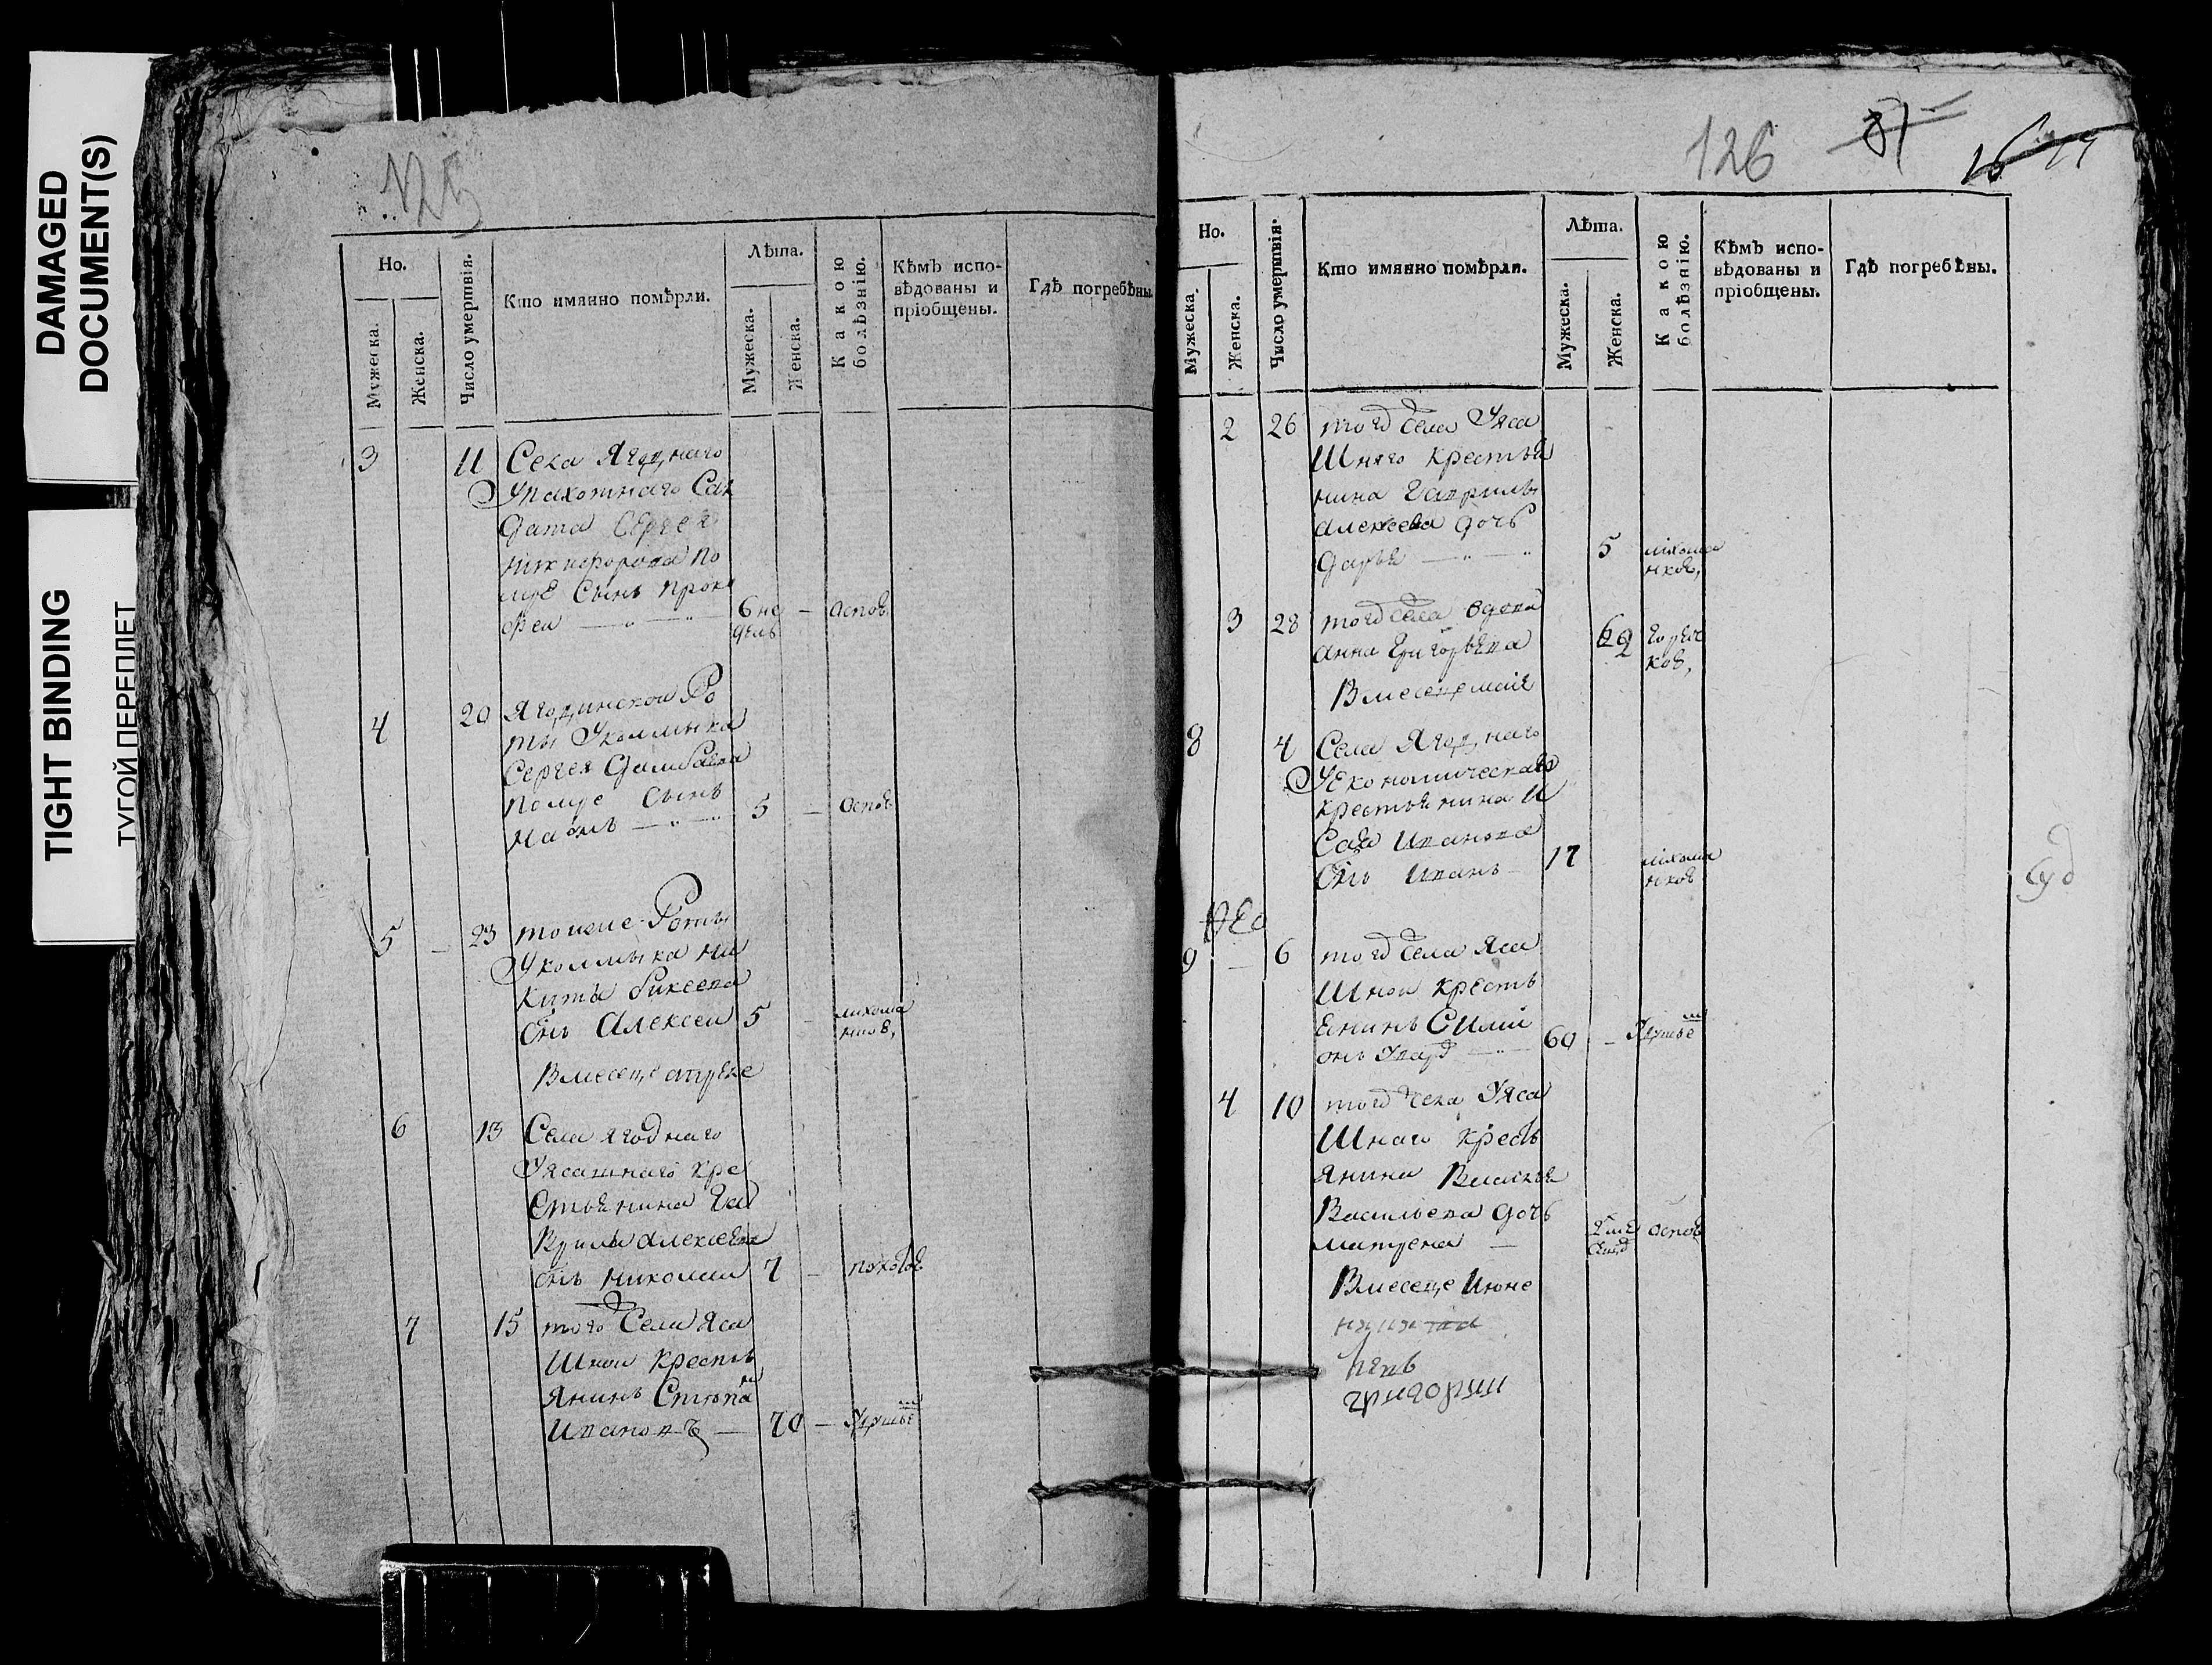 DAMAGED
DOCUMENT(S)
TIGHT BINDING
ТУГОЙ ПЕРЕПЛЕТ
125
Но.
Мужеска.
Женска.
Число умертвія.
Кто имянно помѣрли.
Лѣта.
Мужеска.
Женска.
Какою болѣзнію.
Кѣмъ испо-
вѣдованы и
пріобщены.
Гдѣ погребѣны.
3 11 Села Ягоднаго
Упахотнаго Сал
дата Сергея
Никифорова по
муе Сынъ Проко
феи 6 не — Оспоѣ
дель
4 20 Ягодинской Ро
ты Уколмыка
Сергея
помуе Сынъ
5 — Оспоѣ
5 — 23 тоиже Роты
Уколмыка Ни
киты
Снъ Алексеи 5 лихома
нкоѣ,
Вмесеце апреле
6 13 Села ягоднаго
Уясашнаго кре
стьянина Га
врилы Алексеева
снъ николаи 7 —
7 15 того Села Яса
Шнои кресть
янинъ Степа
Ивановъ — 70 —
126 81
Но.
Мужеска.
Женска.
Число умертвія.
Кто имянно помѣрли.
Лѣта.
Мужеска.
Женска.
Какою болѣзнію.
Кѣмъ испо-
вѣдованы и
пріобщены.
Гдѣ погребѣны.
2 26 тогожъ села Уяса
Шнаго крестья
нина Гаврилы
Алексеева дочь
Дарья 5 лихома
нкоѣ,
3 28 тогожъ села вдова
Анна Григорьева 62 горяч
коѣ,
Вмесеце маие
8 4 Села Ягоднаго
Уекономическаго
крестьянина И
Сая Иванова
Снъ Иванъ 17 лихома
нкоѣ
9 — 6 тогожъ села Яса
Шнои кресть
янинъ Сими
онъ 60 —
4 10 тогожъ села Уяса
Шнаго кресть
янина Власья
Васильева дочь
матрена — Оспоѣ
Вмесеце Июне
иерѣ
григории